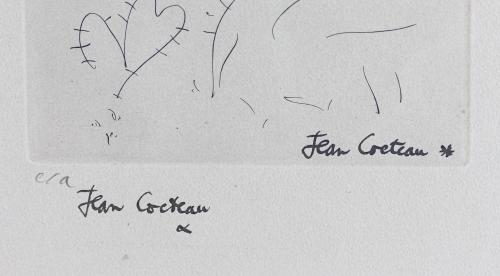 Jean Cocteau *
e/a
Jean Cocteau